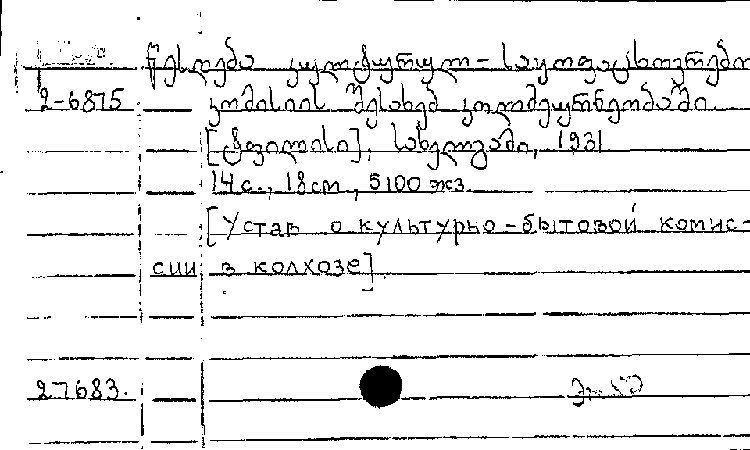 წესდება კულტურულ-საყოფაცხოვრებო
2-6875 კომისიის შესახებ კოლმეურნეობაში.
[ტფილისი], სახელგამი, 1931
14 с., 18 cm, 5100 экз.
[Устав о культурно-бытовой комис-
сии в колхозе].
27683.